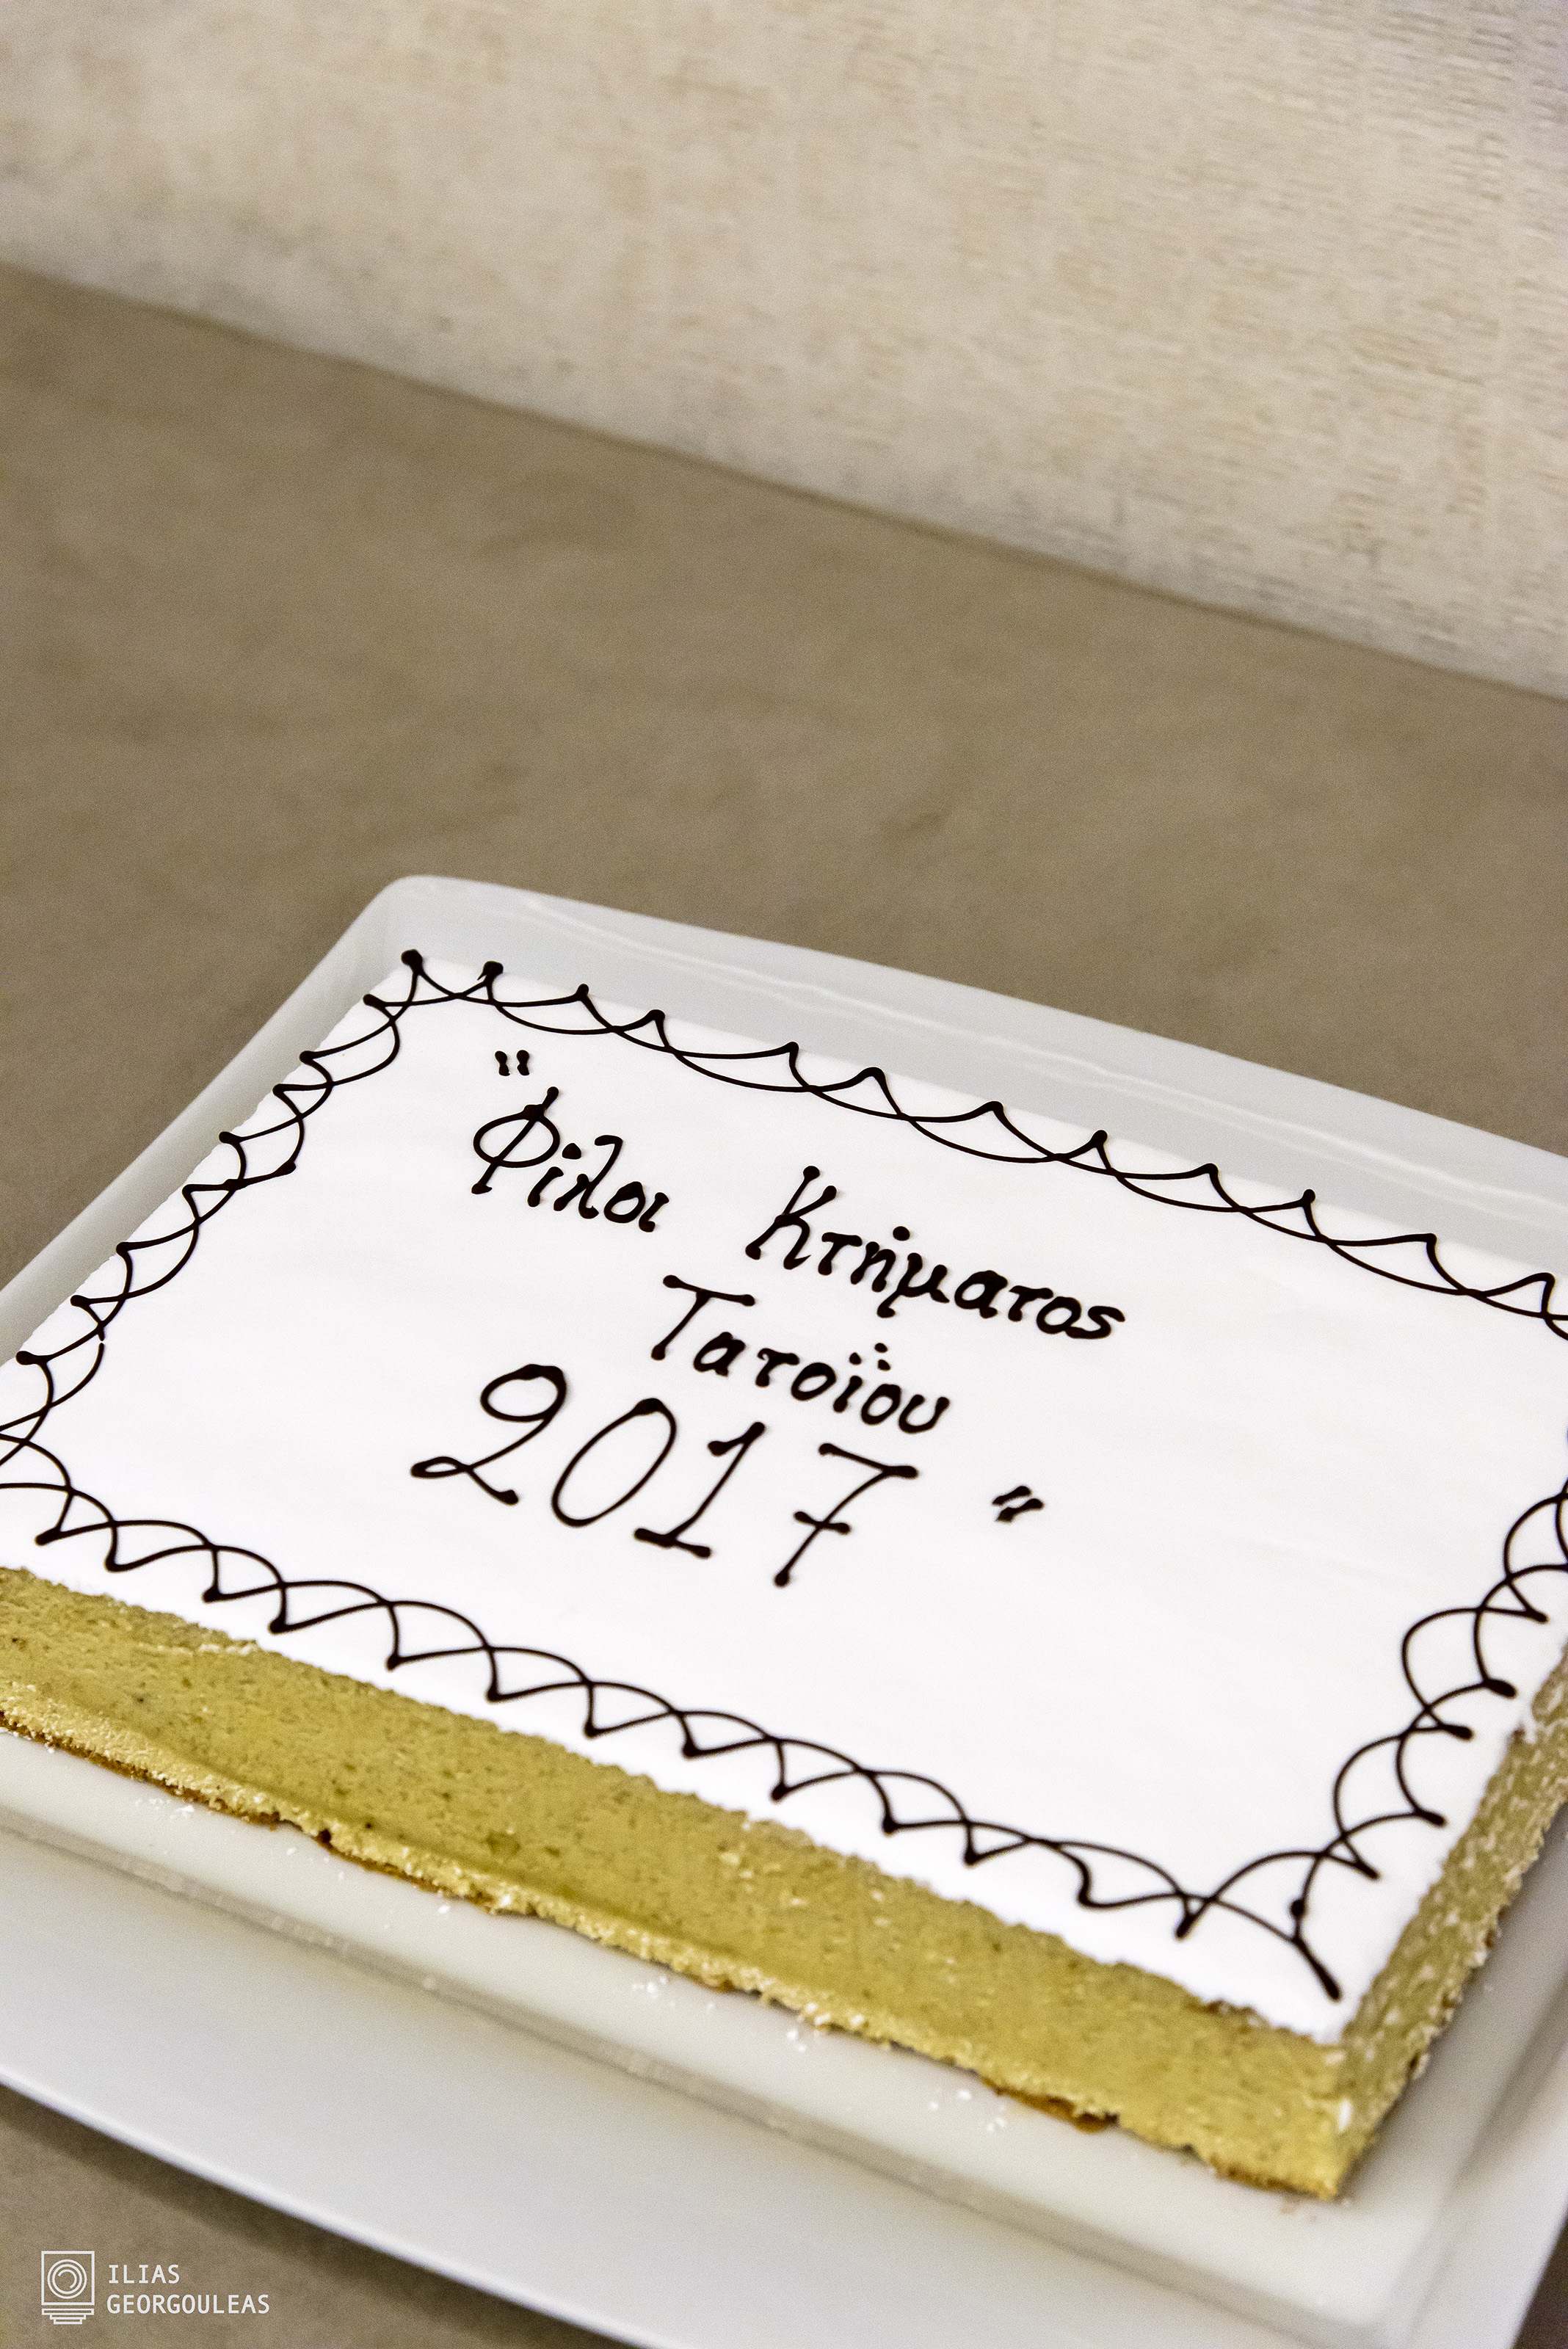 "Φίλοι Κτήματος
Τατοΐου
2017"
ILIAS
GEORGOULEAS